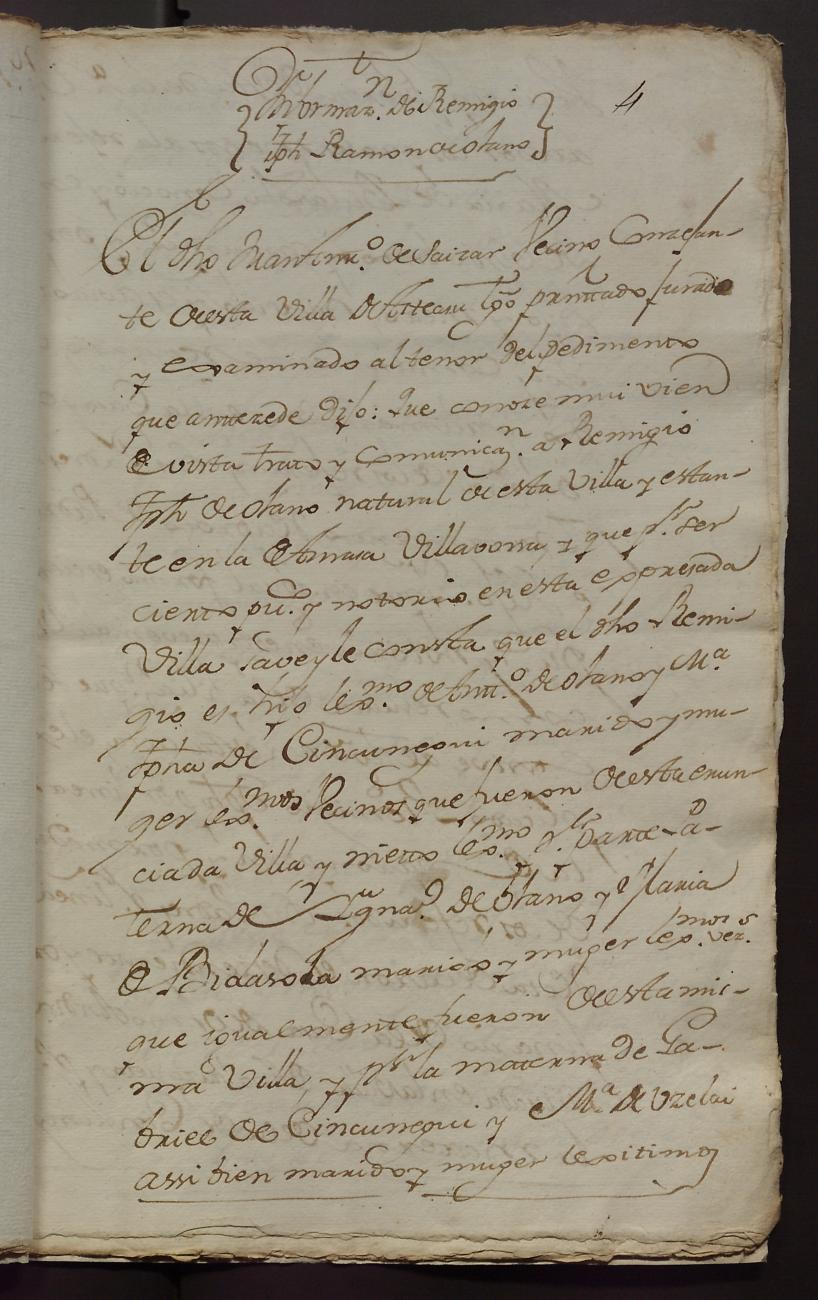 Informaz.n de Remigio
Jph Ramon de Olano
4
El dho Martin de Saizar Vecino Conzejan-
te de esta Villa de tgo presentado jurado
y examinado al tenor del pedimento
que antezede dijo: Que conoze mui vien
de vista trato y Comunicaz.n a Remigio
Jph de Olano natural de esta Villa y estan-
te en la de Amasa Villavona, y que p.r ser
cierto pu.co y notorio en esta expresada
Villa save y le consta que el dho Remi-
gio es hijo lex.mo de Ant.o de Olano y M.a
Jpha de Cincunegui marido y mu-
ger lex.mos Vecinos que fueron de esta enun-
ciada Villa y nieto lex.mo p.r parte Pa-
terna de Ygna.o de Olano y Maria
de Bidasola marido y muger lex.mos vez.s
que igualmente fueron de esta mis-
ma Villa, y p.r la materna de Ga-
briel de Cincunegui y M.a de Uzelai
assi bien marido y muger lexitimos